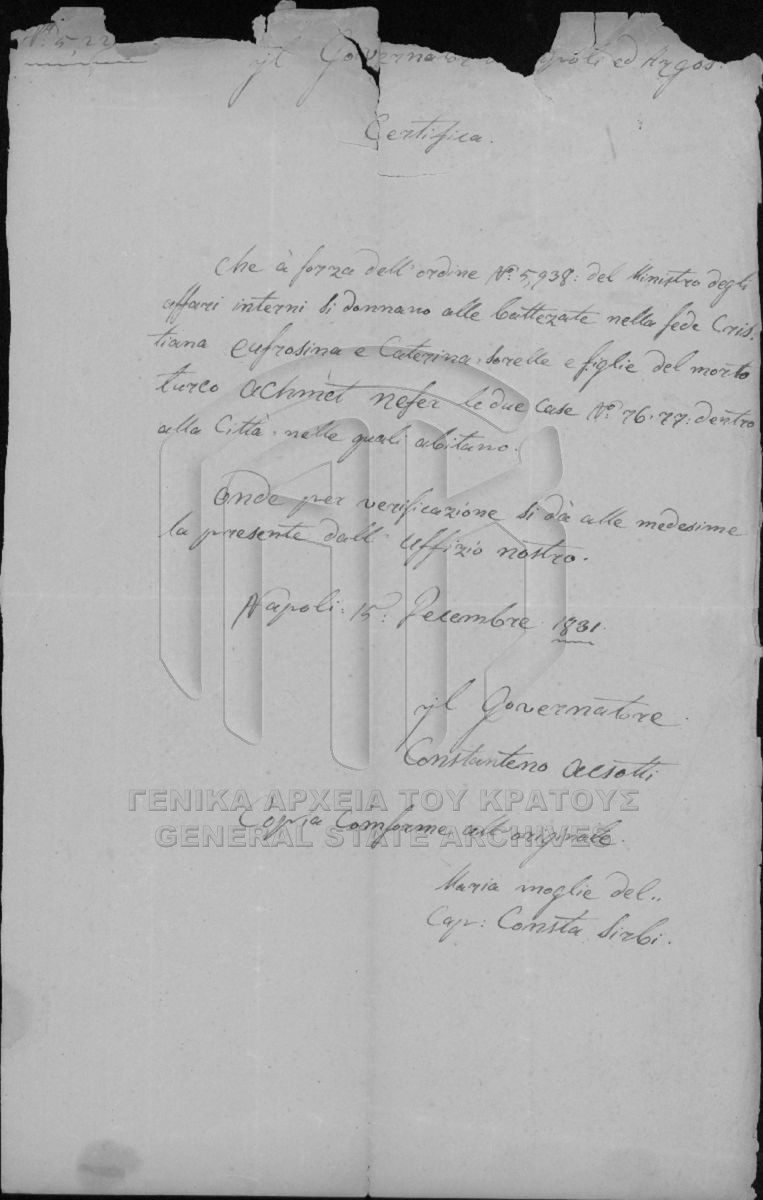 Nº 5,22
Il Governatore poli ed Argos.
Certifica.
Che à forza dell'ordine Nº 5,938: del Ministro degli
affari interni si donnano alle battezate nella fede Cris-
tiana Eufrosina e Caterina, sorelle e figlie del morto
turco Achmet nefer le due Case Nº 76.77: dentro
alla Città, nelle quali abitano.
Onde per verificazione si dà alle medesime
la presente dall' Uffizio nostro.
Napoli: 15: Decembre 1831.
Il Governatore
Constanteno Acsotti
Copia Comforme all'originale.
Maria moglie del..
Cap: Consta Sirbi.
ΓΕΝΙΚΑ ΑΡΧΕΙΑ ΤΟΥ ΚΡΑΤΟΥΣ
GENERAL STATE ARCHIVES